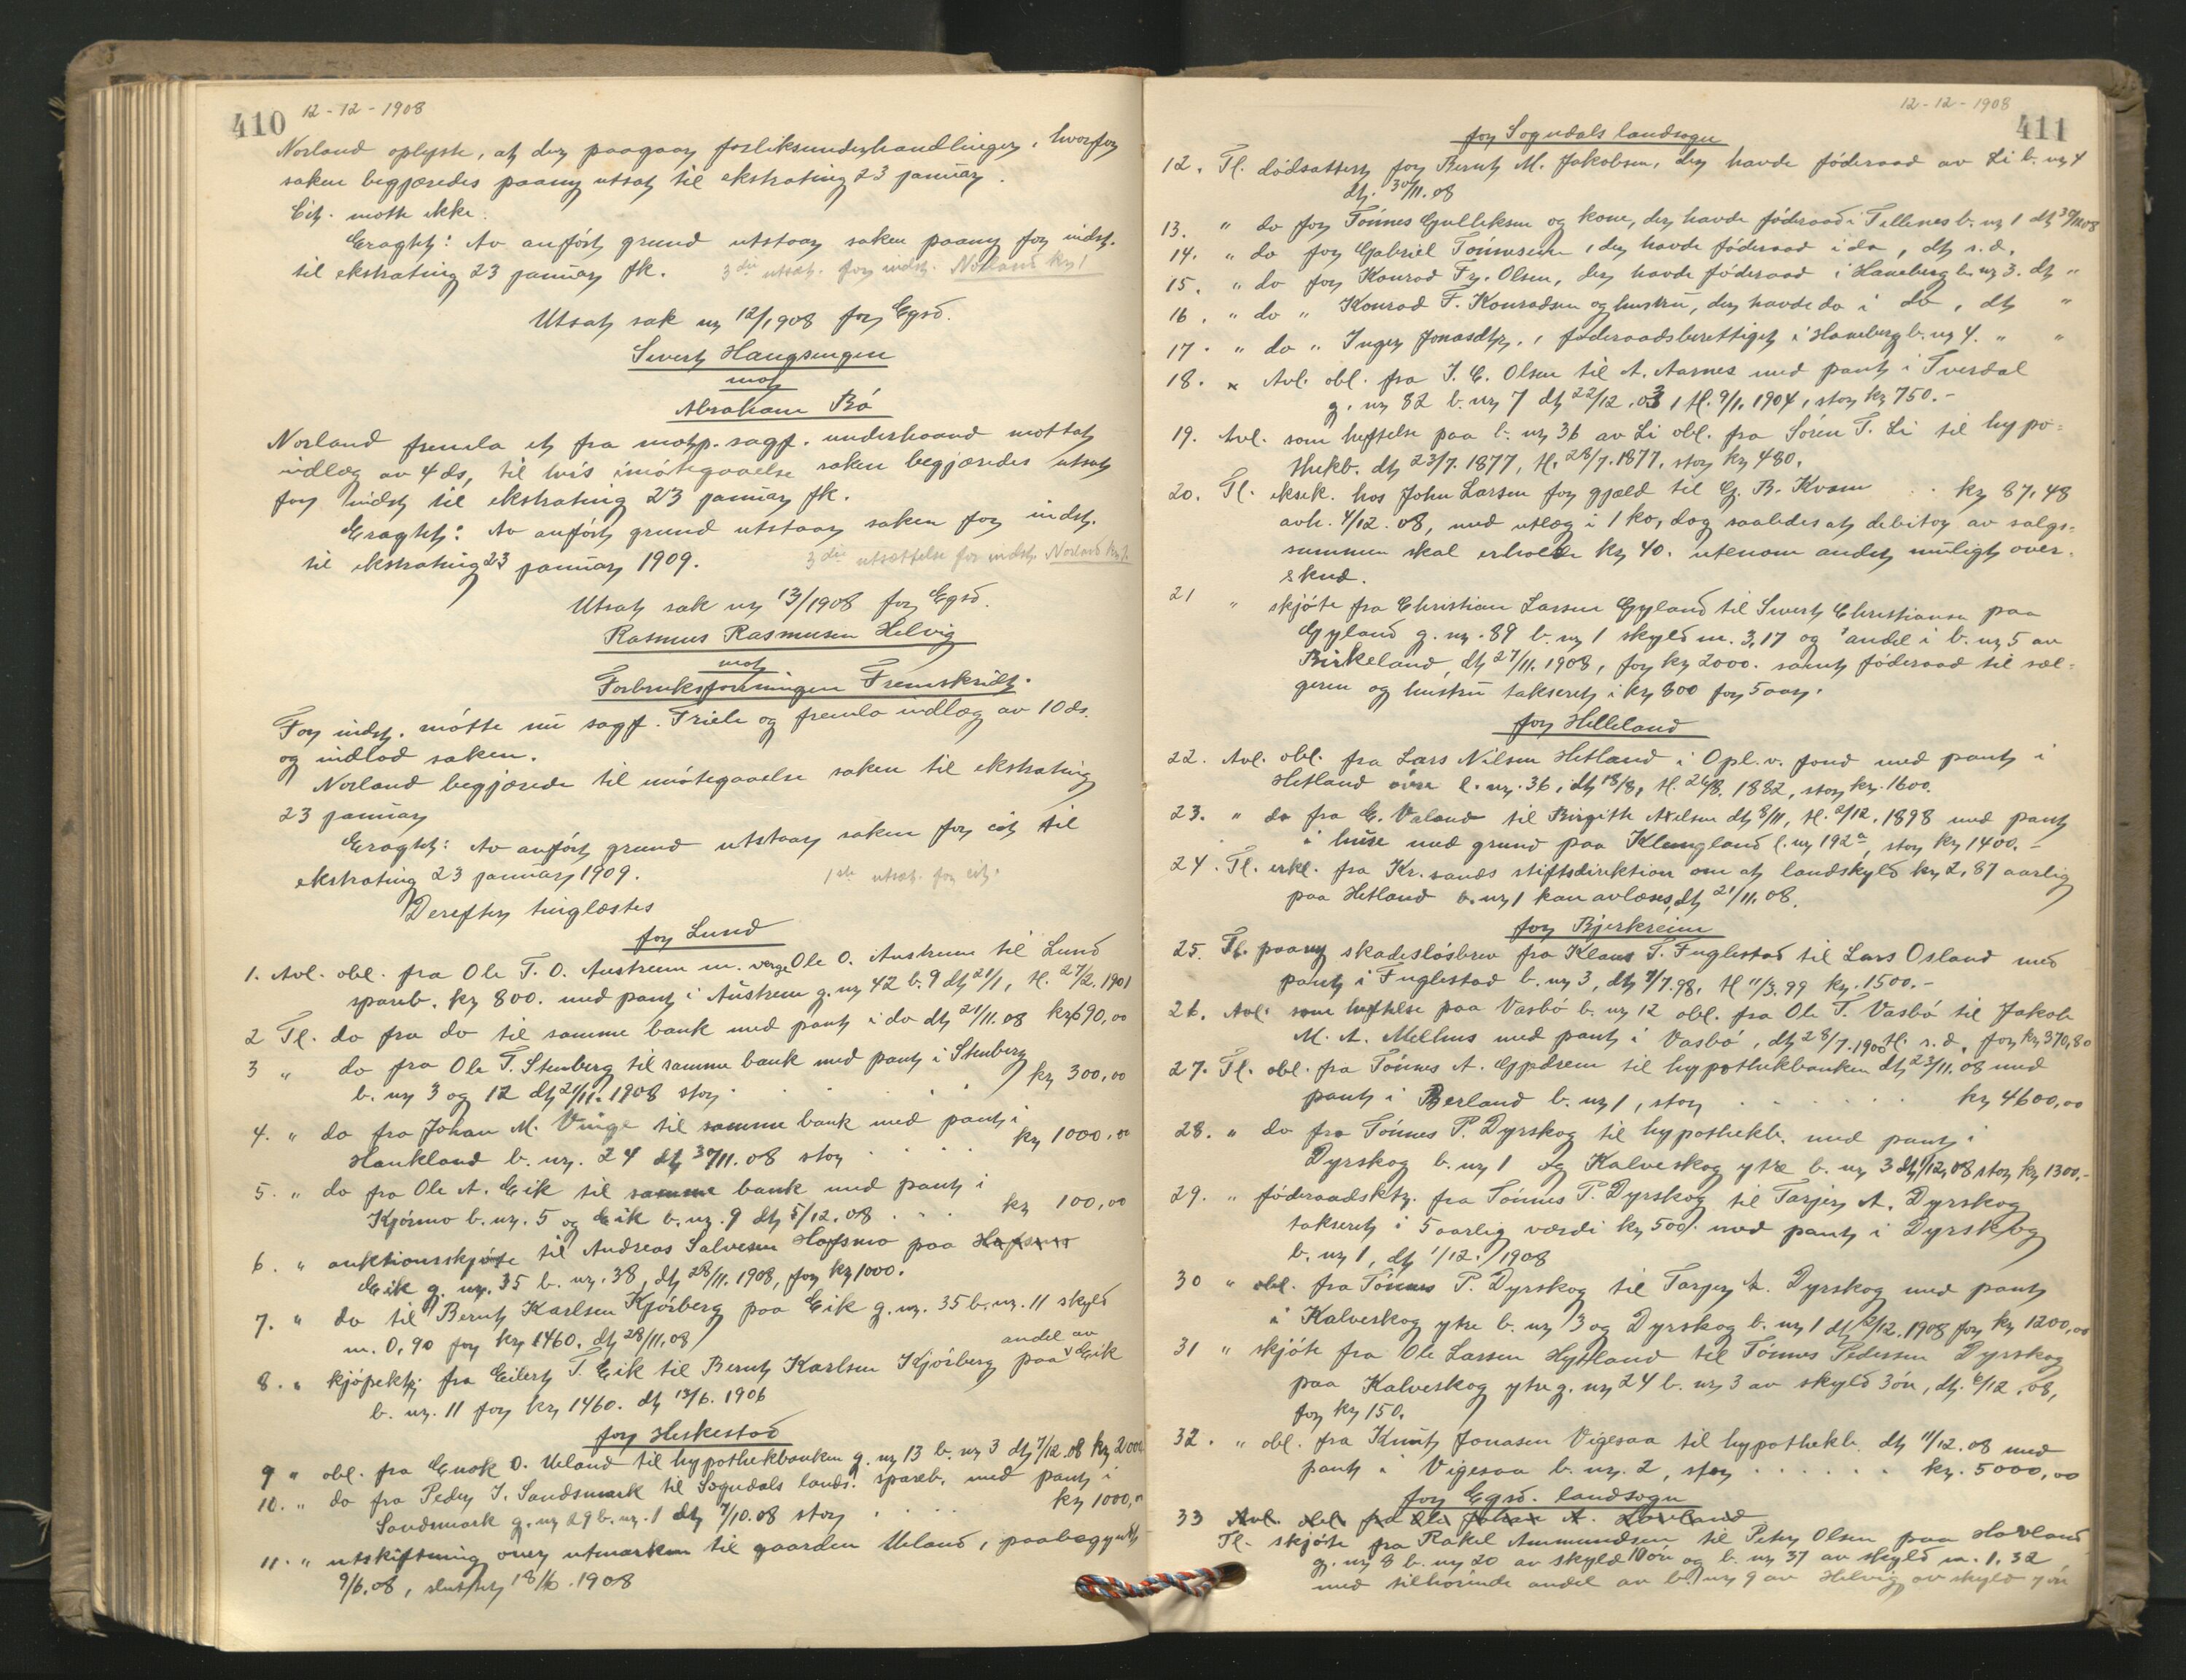 410 12-12-1908
Norland oplyste, at der paagaar forliksunderhandlinger, hvorfor
saken begjæredes paany utsat til ekstrating 23 januar.
Cit. møtte ikke.
Eragtet: Av anført grund utstaar saken paany for indst.
til ekstrating 23 januar fk. 3die utsæt. for indst. Norland kr 1
Utsat sak nr 12/1908 for Egsd.
Sivert Haugsengen
mot
Abraham Bø
Norland fremla et fra motp. sagf. underhaand mottat
indlæg av 4 ds, til hvis imøtegaaelse saken begjæredes utsat
for indst til ekstrating 23 januar fk.
Eragtet: Av anført grund utstaar saken for indst.
til ekstrating 23 januar 1909. 3die utsættelse for indst Norland kr 1.
Utsat sak nr 13/1908 for Egsd.
Rasmus Rasmusen Helvig
mot
Forbruksforeningen Fremskridt.
For indst. møtte nu sagf. Friele og fremla indlæg av 10 ds.
og indlod saken.
Norland begjærede til imøtegaaelse saken til ekstrating
23 januar
Eragtet: Av anført grund utstaar saken for cit til
ekstrating 23 januar 1909. 1ste utsæt. for cit.
Derefter tinglæstes
for Lund
1. Avl. obl. fra Ole T. O. Austrem m. verge Ole O. Austrem til Lund
spareb. kr 800. med pant i Austrem g. nr 42 b. 9 dt 21/1, tl. 27/2. 1901
2 Tl. do fra do til samme bank med pant i do dt 21/11. 08 kr 690,00
3 " do fra Ole T. Stenberg til samme bank med pant i Stenberg
b. nr 3 og 12 dt 21/11. 1908 stor kr 300,00
4. " do fra Johan M. Vinge til samme bank med pant i
Haukland b. nr. 24 dt 30/11. 08 stor kr 1000,00
5. " do fra Ole A. Eik til samme bank med pant i
Kjørmo b. nr. 5 og Eik b. nr. 9 dt 5/12. 08 kr 100,00
6. " auktionsskjøte til Andreas Salvesen Hafsmo paa Hafsmo
Eik g. nr. 35 b. nr. 38, dt 28/11. 1908, for kr 1000.
7. " do til Bernt Karlsen Kjørberg paa Eik g. nr. 35 b. nr. 11 skyld
m. 0,90 for kr 1460. dt 28/11, 08
8. " kjøpektr fra Eilert T. Eik til Bernt Karlsen Kjørberg paa andel av Eik
b. nr. 11 for kr 1460. dt 13/6. 1906
for Heskestad
9 " obl. fra Enok O. Ueland til hypothekbanken g. nr 13 b. nr 3 dt 7/12. 08 kr 2000
10. " do fra Peder J. Sandsmark til Sogndals lands. spareb. med pant i
Sandsmark g. nr 29 b. nr. 1 dt 7/10. 08 stor kr 1000,"
11. " utskiftning over utmarken til gaarden Ueland, paabegyndt
9/6. 08, sluttet 18/10. 1908
12-12-1908 411
for Sogndals landsogn
12. Tl. dødsattest for Bernt M. Jakobsen, der havde føderaad av Li b. nr 4
dt. 30/11. 08
13. " do for Tønnes Gulliksen og kone, der havde føderaad i Tellenes b. nr 1 dt 30/11 08
14. " do for Gabriel Tønnesen, der havde føderaad i do, dt s. d.
15. " do for Konrad Fr. Olsen, der havde føderaad i Haneberg b. nr 3. dt "
16. " do " Konrad F. Konradsen og hustru, der havde do i do, dt "
17. " do " Inger Jonasdtr., føderaadsberettiget i Haneberg b. nr 4. " "
18. Avl. obl. fra J. C. Olsen til A. Aarnes med pant i Tverdal
g. nr 82 b. nr 7 dt 22/12. 03, tl. 9/1. 1904, stor kr 750.-
19. Avl. som heftelse paa b. nr 36 av Li obl. fra Søren T. Li til hypo-
thekb. dt 23/7. 1877, tl. 28/7. 1877. stor kr 480.
20. Tl. eksek. hos John Larsen for gjæld til G. B. Kvam kr 87,48
avh. 4/12. 08, med utlæg i 1 ko, dog saaledes at debitor av salgs-
summen skal erholde kr 40. utenom andet muligt over-
skud.
21 " skjøte fra Christian Larsen Gyland til Sivert Christiansen paa
Gyland g. nr. 89 b. nr 1 skyld m. 3,17 og andel i b. nr 5 av
Birkeland, dt 27/11. 1908, for kr 2000. samt føderaad til sæl-
geren og hustru taksert i kr 800 for 5 aar.
for Helleland
22. Avl. obl. fra Lars Nilsen Hetland i Opl. v. fond med pant i
Hetland øvre l. nr. 36, dt 18/8, tl. 26/8. 1882, stor kr. 1600.
23. " do fra E. Valand til Birgith Axelsen dt 8/11, tl. 2/12. 1898 med pant
i huse med grund paa Klungland l. nr 192a, stor kr 1400.-
24. Tl. erkl. fra Kr.sands stiftsdirektion om at landskyld kr 2,87 aarlig
paa Hetland b. nr 1 kan avløses, dt 21/11. 08.
for Bjerkreim
25. Tl. paany skadesløsbrev fra Klaus T. Fuglestad til Lars Osland med
pant i Fuglestad b. nr 3, dt 7/7. 98, tl 11/3. 99 kr. 1500.-
26. Avl. som heftelse paa Vasbø b. nr 12 obl. fra Ole T. Vasbø til Jakob
M. A. Melhus med pant i Vasbø, dt 28/7. 1900 tl. s. d. for kr 370,80
27. Tl. obl. fra Tønnes A. Gjedrem til hypothekbanken dt 23/11. 08 med
pant i Berland b. nr 1, stor kr 4600,00
28. " do fra Tønnes P. Dyrskog til hypothekb. med pant i
Dyrskog b. nr 1 og Kalveskog ytre b. nr 3 dt 1/12, 08 stor kr 1300,-
29. " føderaadsktr. fra Tønnes P. Dyrskog til Tarjer A. Dyrskog
taksert i 5 aarlig værdi kr 500. med pant i Dyrskog
b. nr 1, dt 1/12. 1908
30 " obl. fra Tønnes P. Dyrskog til Tarjer A. Dyrskog med pant
i Kalveskog ytre b. nr 3 og Dyrskog b. nr 1 dt 2/12. 1908 for kr 1200,00
31 " skjøte fra Ole Larsen Hytland til Tønnes Pedersen Dyrskog
paa Kalveskog ytre g. nr 24 b. nr 3 av skyld 3 øre, dt. 6/12. 08,
for kr 150.
32. " obl. fra Knut Jonasen Vigesaa til hypothekb. dt 11/12. 08 med
pant i Vigesaa b. nr. 2, stor kr. 5000,00
for Egsd. landsogn
33 Avl. obl. fra Ole Johan A. Hovland
Tl. skjøte fra Rakel Ammundsen til Peter Olsen paa Hovland
g. nr 8 b. nr 20 av skyld 10 øre og b. nr 37 av skyld m. 1,32
med tilhørende andel av b. nr 9 av Helvig av skyld 7 øre